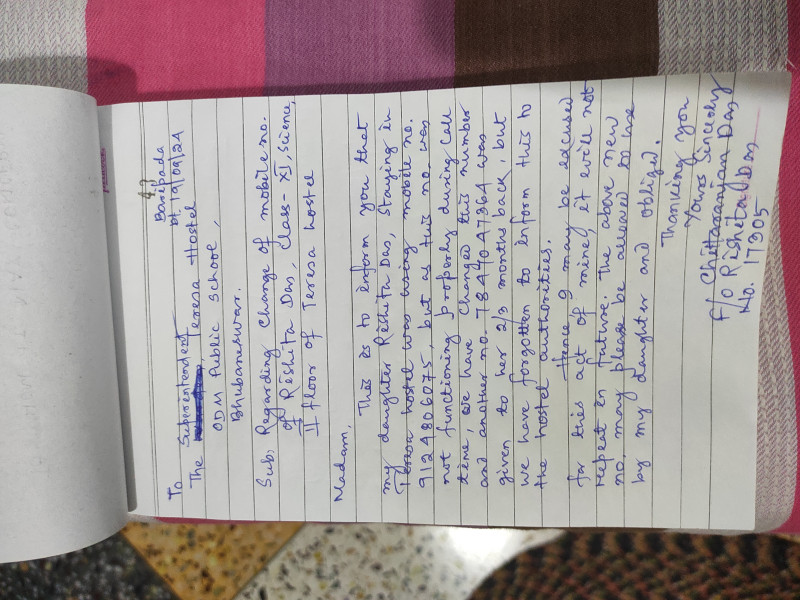 Baripada
To Dt 19/09/24
The Superintendent
Teresa Hostel
ODM Public School,
Bhubaneswar.
Sub: Regarding Change of mobile no.
of Rishita Das, Class-XI, Science,
II floor of Teresa hostel
Madam,
This is to inform you that
my daughter Rishita Das, Staying in
Teresa hostel was using mobile no.
9124806075, but as this no. was
not functioning properly during call
time, we have changed this number
and another no. 7847047364 was
given to her 2/3 months back, but
we have forgotten to inform this to
the hostel authorities.
Hence I may be excused
for this act of mine, it will not
repeat in future. The above new
no. may please be allowed to use
by my daughter and oblige.
Thanking you
Yours Sincerely
Chittaranjan Das
F/o Rishita Das
No. 17305